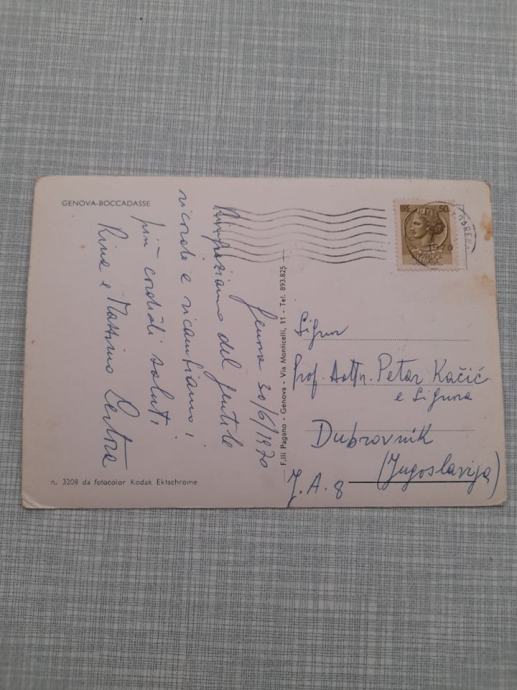 GENOVA-BOCCADASSE
Genova 30/6/1970
Ringraziamo del gentile
ricordo e ricambiamo i
più cordiali saluti
Rina e Massimo
F.lli Pagano - Genova - Via Monticelli, 11 - Tel. 893.825
Signor
Prof. Petar Kačić
e Signora
Dubrovnik
(Jugoslavija)
J. A. 8
n. 3208 da fotocolor Kodak Ektachrome